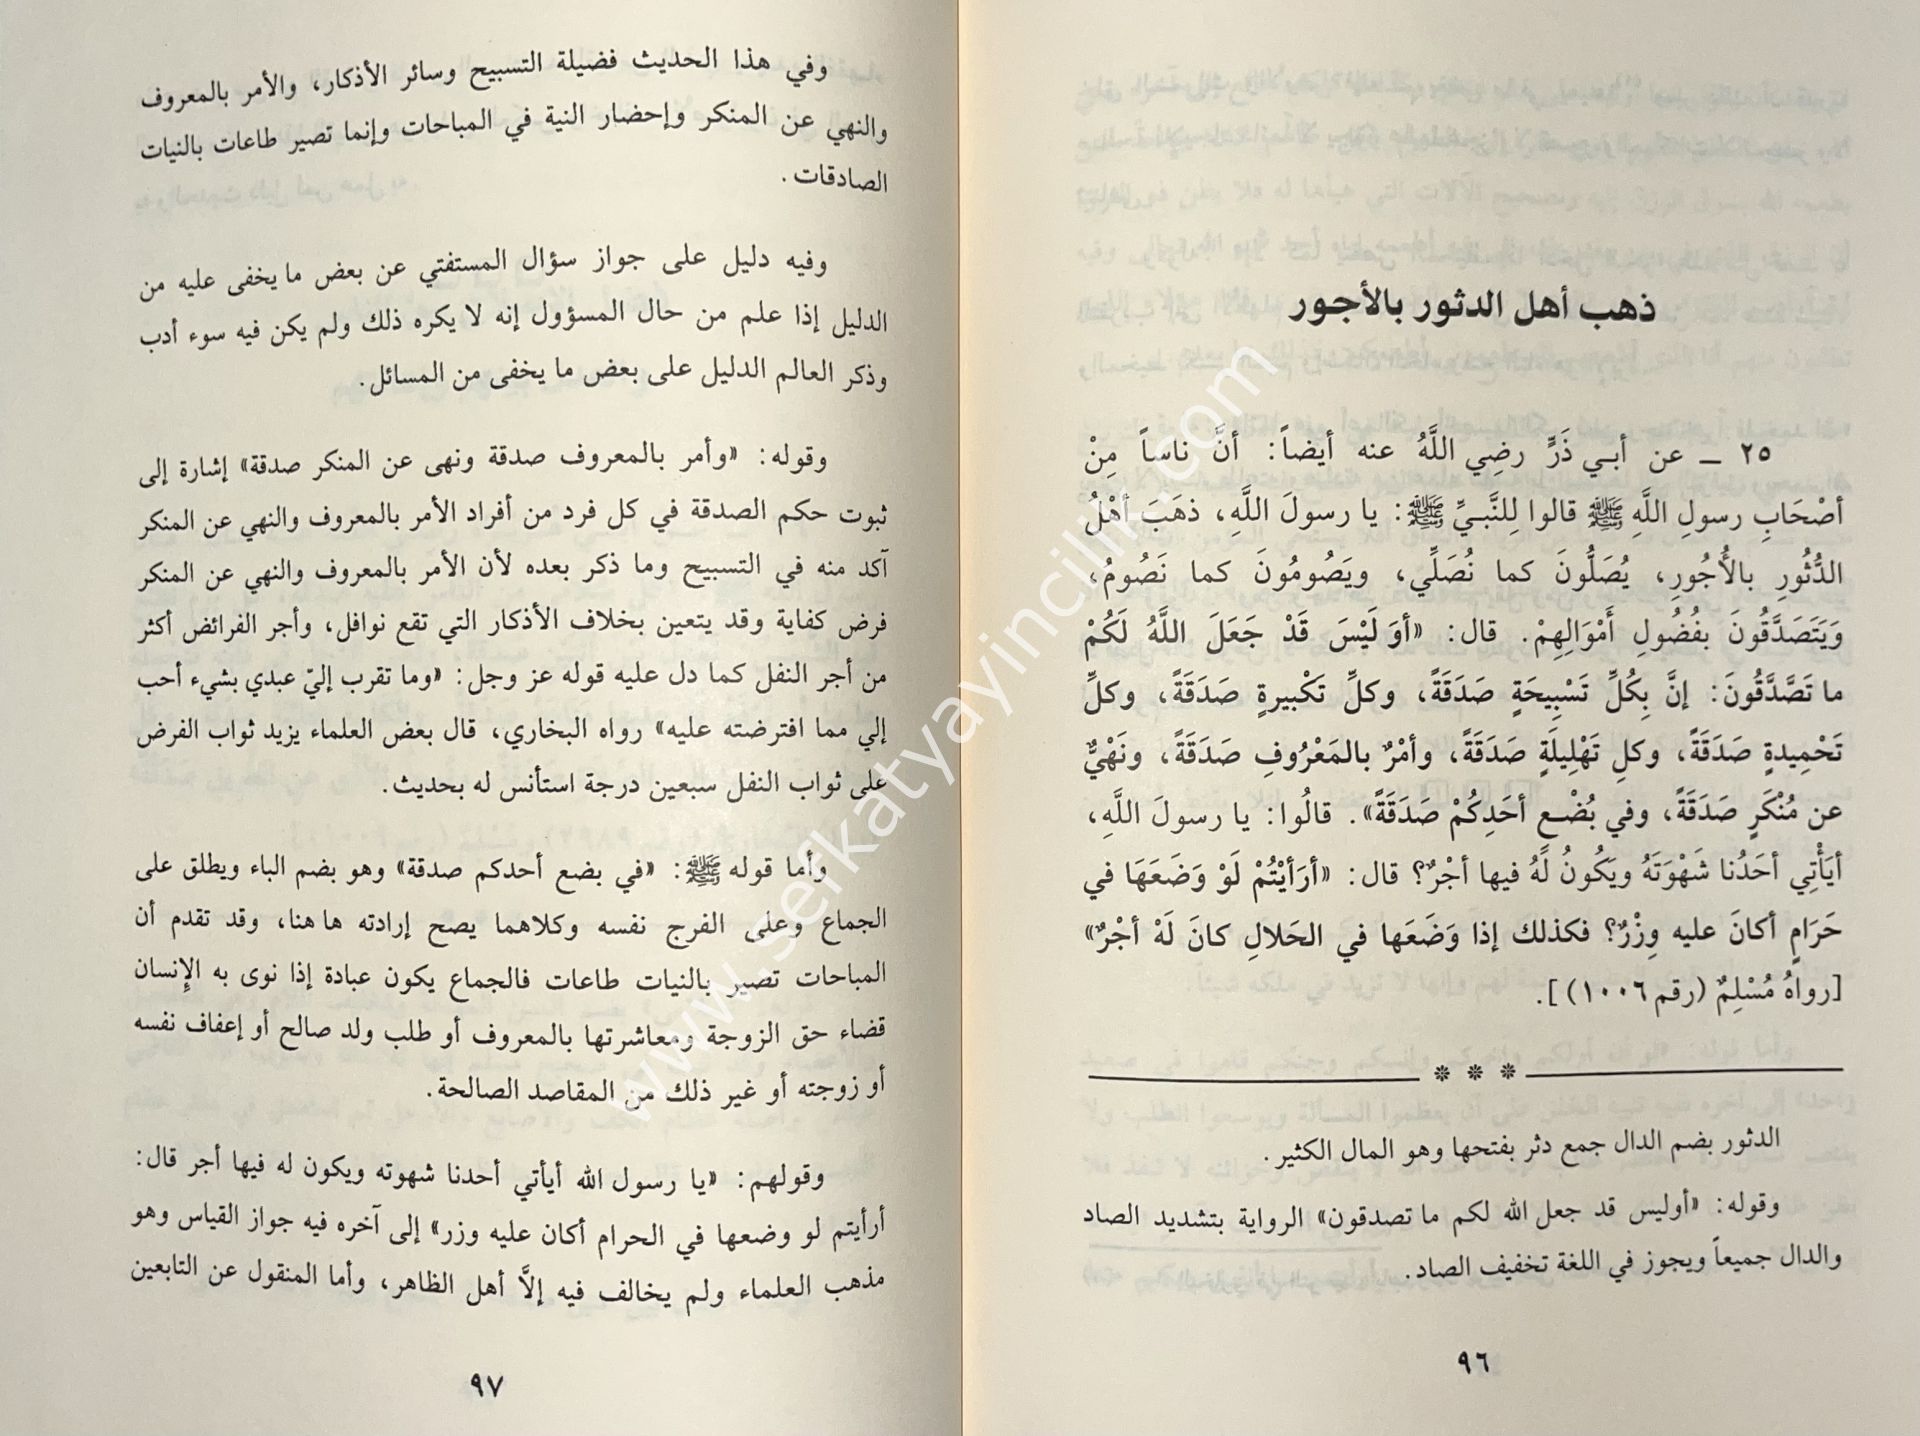 ذهب أهل الدثور بالأجور
٢٥ ـ عن أبي ذَرٍّ رضِي اللَّهُ عنه أيضاً: أنَّ ناساً مِنْ
أصْحَابِ رسولِ اللَّهِ ﷺ قالوا لِلنَّبيِّ ﷺ: يا رسولَ اللَّهِ، ذهَبَ أهْلُ
الدُّثُورِ بالأُجُورِ، يُصَلُّونَ كما نُصَلِّي، ويَصُومُونَ كما نَصُومُ،
وَيَتَصَدَّقُونَ بفُضُولِ أَمْوَالِهِمْ. قال: «أوَ لَيْسَ قَدْ جَعَلَ اللَّهُ لَكُمْ
ما تَصَّدَّقُونَ: إنَّ بِكُلِّ تَسْبِيحَةٍ صَدَقَةً، وكلِّ تَكْبيرةٍ صَدَقَةً، وكلِّ
تَحْمِيدةٍ صَدَقَةً، وكلِ تَهْلِيلَةٍ صَدَقَةً، وأمْرٌ بالمَعْرُوفِ صَدَقَةً، ونَهْيٌ
عن مُنْكَرٍ صَدَقَةً، وفي بُضْعِ أحَدِكُمْ صَدَقَةً». قالُوا: يا رسولَ اللَّهِ،
أيَأْتِي أحَدُنا شَهْوَتَهُ ويَكُونُ لَهُ فيها أجْرٌ؟ قال: «أرَأيْتُمْ لَوْ وَضَعَهَا في
حَرَامٍ أكانَ عليه وِزْرٌ؟ فكذلك إذا وَضَعَها في الحَلالِ كانَ لَهْ أجْرٌ»
[رواهُ مُسْلِمٌ (رقم ١٠٠٦)].
❊ ❊ ❊
الدثور بضم الدال جمع دثر بفتحها وهو المال الكثير.
وقوله: «أوليس قد جعل الله لكم ما تصدقون» الرواية بتشديد الصاد
والدال جميعاً ويجوز في اللغة تخفيف الصاد.
٩٦
وفي هذا الحديث فضيلة التسبيح وسائر الأذكار، والأمر بالمعروف
والنهي عن المنكر وإحضار النية في المباحات وإنما تصير طاعات بالنيات
الصادقات.
وفيه دليل على جواز سؤال المستفتي عن بعض ما يخفى عليه من
الدليل إذا علم من حال المسؤول إنه لا يكره ذلك ولم يكن فيه سوء أدب
وذكر العالم الدليل على بعض ما يخفى من المسائل.
وقوله: «وأمر بالمعروف صدقة ونهى عن المنكر صدقة» إشارة إلى
ثبوت حكم الصدقة في كل فرد من أفراد الأمر بالمعروف والنهي عن المنكر
آكد منه في التسبيح وما ذكر بعده لأن الأمر بالمعروف والنهي عن المنكر
فرض كفاية وقد يتعين بخلاف الأذكار التي تقع نوافل، وأجر الفرائض أكثر
من أجر النفل كما دل عليه قوله عز وجل: «وما تقرب إليّ عبدي بشيء أحب
إلي مما افترضته عليه» رواه البخاري، قال بعض العلماء يزيد ثواب الفرض
على ثواب النفل سبعين درجة استأنس له بحديث.
وأما قوله ﷺ: «في بضع أحدكم صدقة» وهو بضم الباء ويطلق على
الجماع وعلى الفرج نفسه وكلاهما يصح إرادته ها هنا، وقد تقدم أن
المباحات تصير بالنيات طاعات فالجماع يكون عبادة إذا نوى به الإنسان
قضاء حق الزوجة ومعاشرتها بالمعروف أو طلب ولد صالح أو إعفاف نفسه
أو زوجته أو غير ذلك من المقاصد الصالحة.
وقولهم: «يا رسول الله أيأتي أحدنا شهوته ويكون له فيها أجر قال:
أرأيتم لو وضعها في الحرام أكان عليه وزر» إلى آخره فيه جواز القياس وهو
مذهب العلماء ولم يخالف فيه إلاَّ أهل الظاهر، وأما المنقول عن التابعين
٩٧